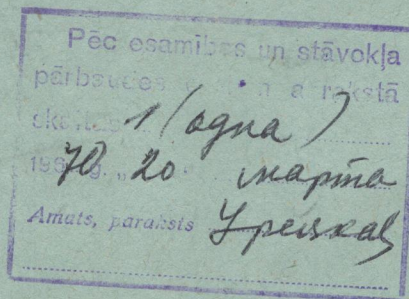 Pēc esamības un stāvokļa
pārbaudes a rakstā
1 (одна)
196 g. 70 20 марта
Amats, paraksts Урецкая